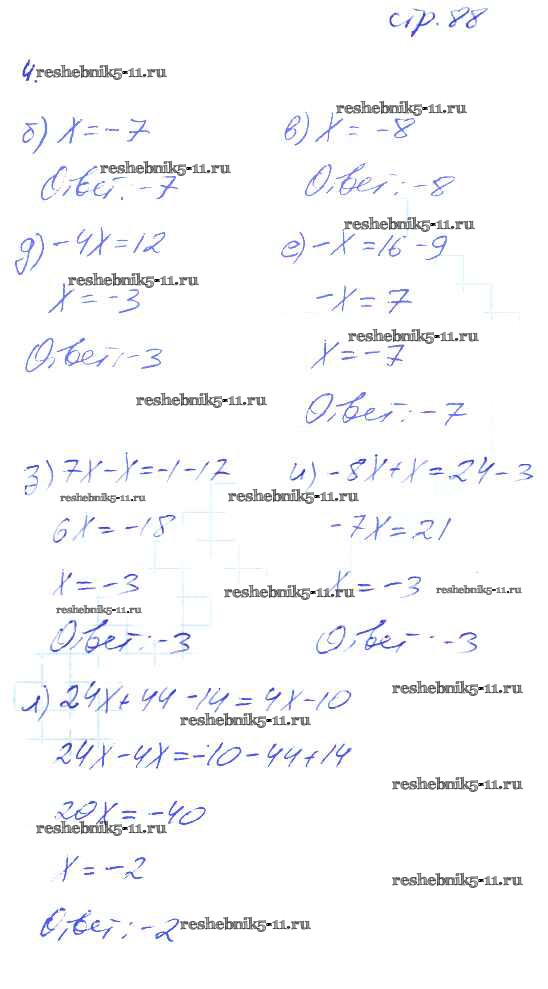 стр. 88
4. reshebnik5-11.ru
reshebnik5-11.ru
б) x = -7 в) x = -8
reshebnik5-11.ru
Ответ: -7 Ответ: -8
reshebnik5-11.ru
д) -4x = 12 е) -x = 16 - 9
reshebnik5-11.ru
x = -3 -x = 7
reshebnik5-11.ru
Ответ: -3 x = -7
reshebnik5-11.ru
Ответ: -7
з) 7x - x = -1 - 17 и) -8x + x = 24 - 3
reshebnik5-11.ru reshebnik5-11.ru
6x = -18 -7x = 21
x = -3 x = -3
reshebnik5-11.ru reshebnik5-11.ru
reshebnik5-11.ru
Ответ: -3 Ответ: -3
reshebnik5-11.ru
л) 24x + 44 - 14 = 4x - 10
reshebnik5-11.ru
24x - 4x = -10 - 44 + 14
reshebnik5-11.ru
20x = -40
reshebnik5-11.ru
x = -2
reshebnik5-11.ru
Ответ: -2 reshebnik5-11.ru